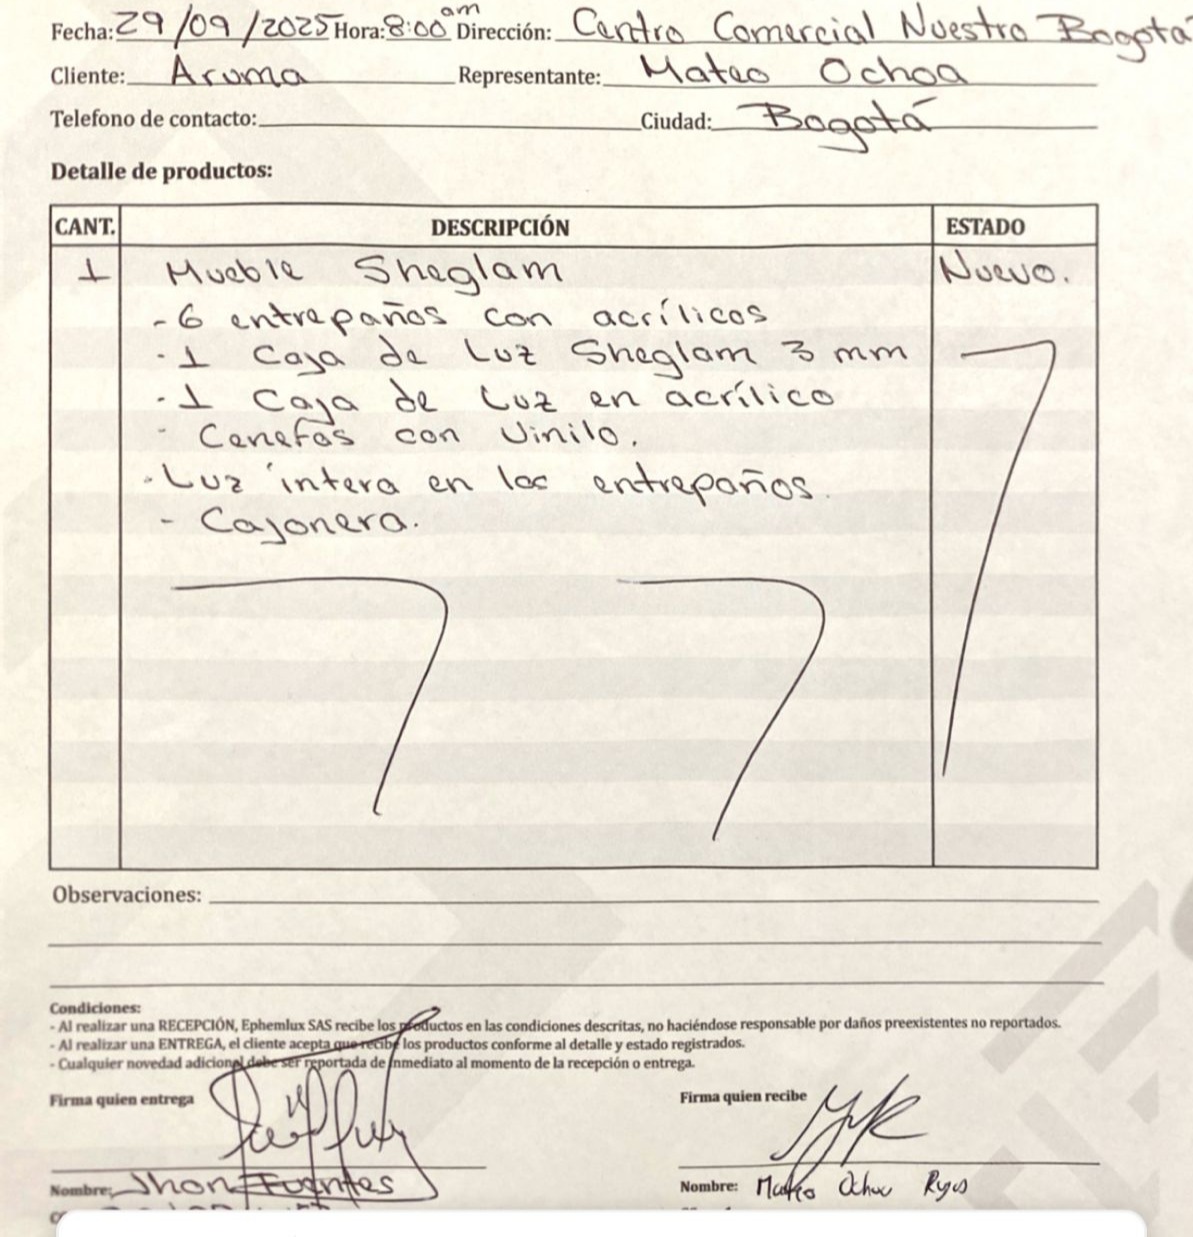 Fecha: 29/09/2025 Hora: 8:00 am Dirección: Centro Comercial Nuestro Bogotá
Cliente: Aruma Representante: Mateo Ochoa
Telefono de contacto: Ciudad: Bogotá
Detalle de productos:
CANT. DESCRIPCIÓN ESTADO
1 Mueble Sheglam Nuevo.
- 6 entrepaños con acrílicos
- 1 Caja de Luz Sheglam 3 mm
- 1 Caja de Luz en acrílico
- Cenefas con Vinilo.
- Luz intera en los entrepaños.
- Cajonera.
Observaciones:
Condiciones:
- Al realizar una RECEPCIÓN, Ephemlux SAS recibe los productos en las condiciones descritas, no haciéndose responsable por daños preexistentes no reportados.
- Al realizar una ENTREGA, el cliente acepta que recibe los productos conforme al detalle y estado registrados.
- Cualquier novedad adicional debe ser reportada de inmediato al momento de la recepción o entrega.
Firma quien entrega Firma quien recibe
Nombre: Jhon Fuentes Nombre: Mateo Ochoa